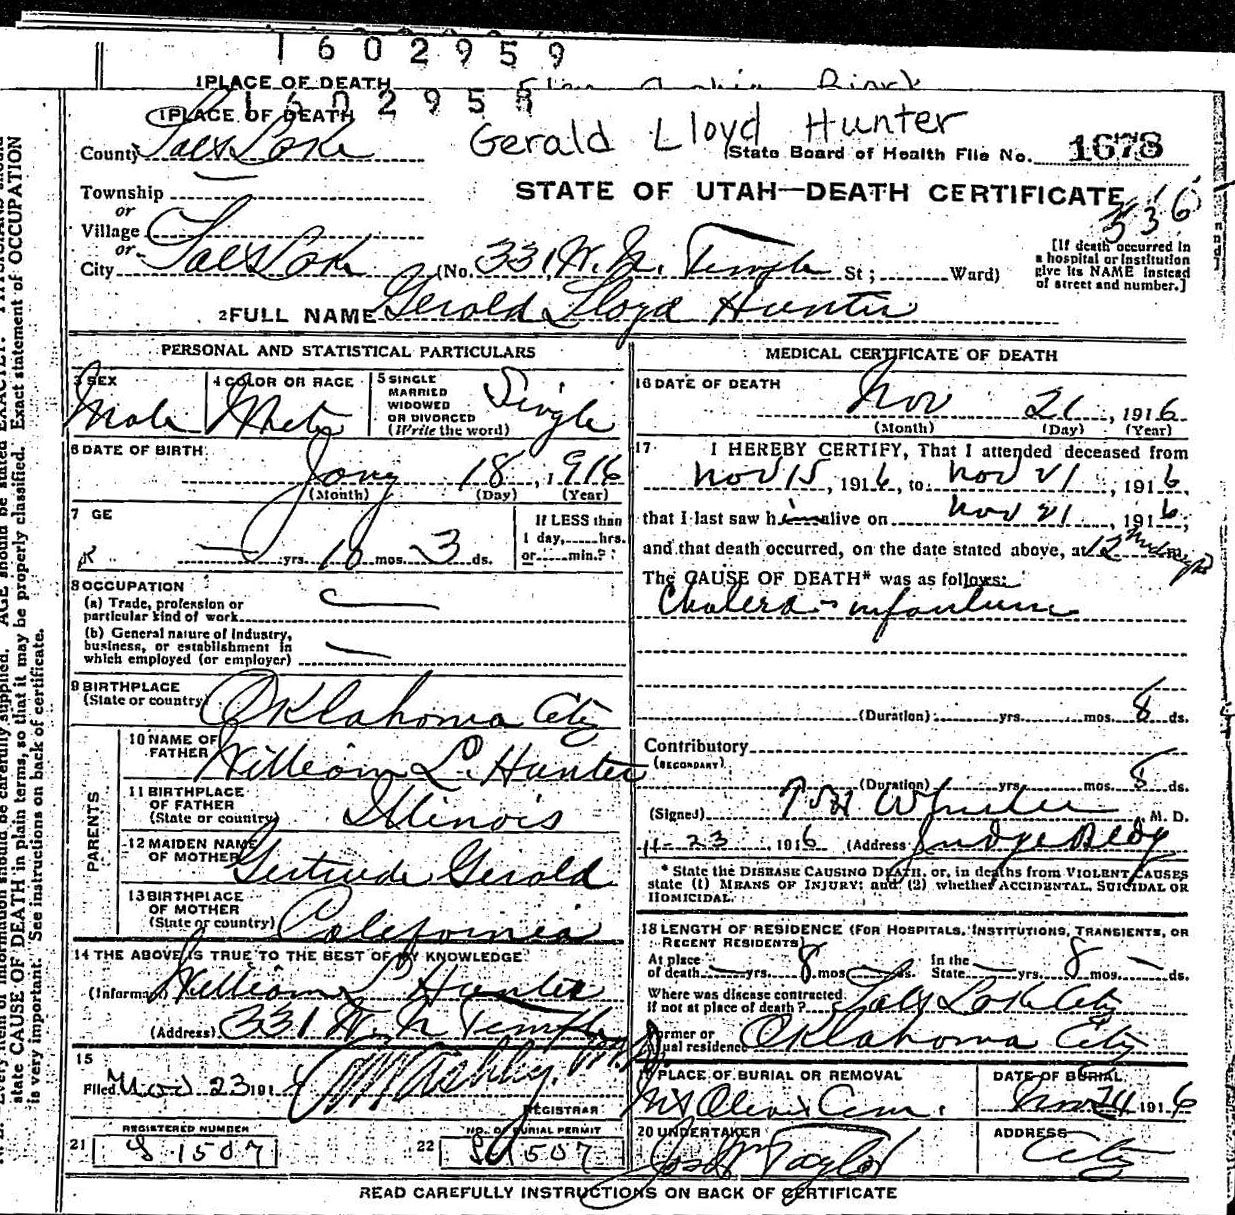 1602959
1 PLACE OF DEATH
1602958
1 PLACE OF DEATH
Gerald Lloyd Hunter
County Salt Lake
State Board of Health File No. 1678
Township
STATE OF UTAH—DEATH CERTIFICATE
or
Village
336
or
City Salt Lake (No. 331 W. N. Temple St; Ward)
[If death occurred in
a hospital or institution
give its NAME instead
of street and number.]
2 FULL NAME Gerald Lloyd Hunter
PERSONAL AND STATISTICAL PARTICULARS
3 SEX Male
4 COLOR OR RACE White
5 SINGLE
MARRIED
WIDOWED
OR DIVORCED
(Write the word)
Single
6 DATE OF BIRTH
Jany 18, 1916
(Month) (Day) (Year)
7 GE
yrs. 10 mos. 3 ds.
If LESS than
1 day, hrs.
or min.?
8 OCCUPATION
(a) Trade, profession or
particular kind of work
(b) General nature of industry,
business, or establishment in
which employed (or employer)
9 BIRTHPLACE
(State or country) Oklahoma City
PARENTS
10 NAME OF
FATHER William L. Hunter
11 BIRTHPLACE
OF FATHER
(State or country) Illinois
12 MAIDEN NAME
OF MOTHER Gertrude Gerald
13 BIRTHPLACE
OF MOTHER
(State or country) California
14 THE ABOVE IS TRUE TO THE BEST OF MY KNOWLEDGE
(Informant) William L Hunter
(Address) 331 W. N Temple
15
Filed Nov 23 191
REGISTRAR
REGISTERED NUMBER
21 S 1507
NO. OF BURIAL PERMIT
22 1507
MEDICAL CERTIFICATE OF DEATH
16 DATE OF DEATH
Nov 21, 1916
(Month) (Day) (Year)
17 I HEREBY CERTIFY, That I attended deceased from
Nov 15, 1916, to Nov 21, 1916,
that I last saw him alive on Nov 21, 1916;
and that death occurred, on the date stated above, at 12 Midnight m.
The CAUSE OF DEATH* was as follows:
Cholera-infantum
(Duration) yrs. mos. 8 ds.
Contributory
(SECONDARY)
(Duration) yrs. mos. 8 ds.
(Signed) M. D.
11-23 1916 (Address) Judge Bldg
* State the DISEASE CAUSING DEATH, or, in deaths from VIOLENT CAUSES
state (1) MEANS OF INJURY; and (2) whether ACCIDENTAL, SUICIDAL OR
HOMICIDAL.
18 LENGTH OF RESIDENCE (FOR HOSPITALS, INSTITUTIONS, TRANSIENTS, OR
RECENT RESIDENTS)
At place
of death — yrs. 8 mos. — ds.
In the
State — yrs. 8 mos. — ds.
Where was disease contracted
If not at place of death? Salt Lake City
Former or
usual residence Oklahoma City
PLACE OF BURIAL OR REMOVAL
Mt Olivet Cem.
DATE OF BURIAL
Nov 24 1916
20 UNDERTAKER
Taylor
ADDRESS
City
READ CAREFULLY INSTRUCTIONS ON BACK OF CERTIFICATE
information should be carefully supplied. AGE should be stated EXACTLY.
state CAUSE OF DEATH in plain terms, so that it may be properly classified. Exact statement of OCCUPATION
is very important. See instructions on back of certificate.